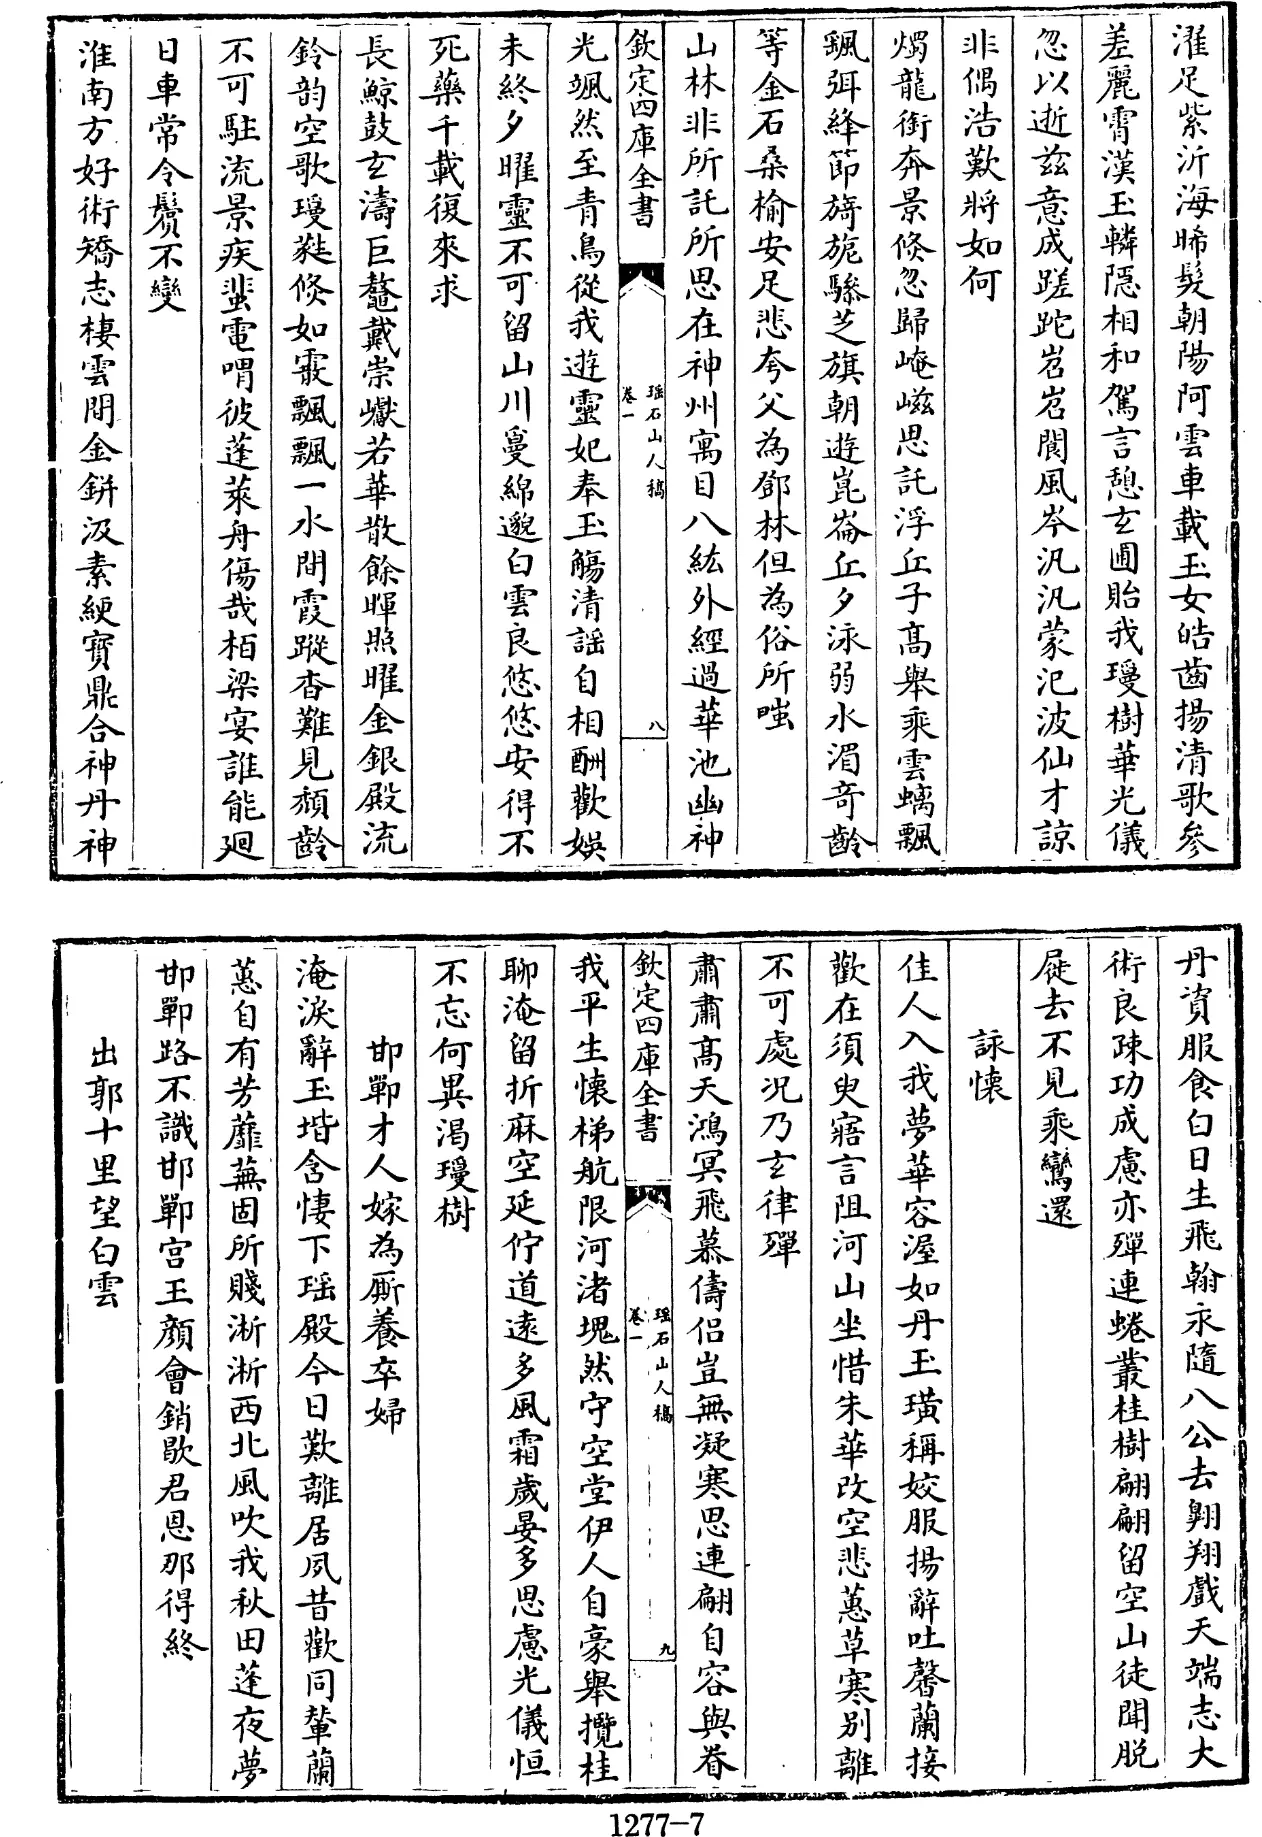 濯足紫沂海晞髮朝陽阿雲車載玉女皓齒揚清歌參
差麗霄漢玉轔隱相和駕言憩玄圃貽我璦樹華光儀
忽以逝兹意成蹉跎岧岧閬風岑汎汎蒙汜波仙才諒
非偶浩歎將如何
燭龍銜奔景倐忽歸崦嵫思託浮丘子髙舉乘雲螭飄
颻弭絳節旖旎驂芝旗朝遊崑崙丘夕泳弱水湄奇齡
等金石桑榆安足悲夸父為鄧林但為俗所嗤
山林非所託所思在神州寓目八紘外經過華池幽神
欽定四庫全書
瑶石山人稿
卷一
八
光颯然至青鳥從我遊靈妃奉玉觴清謡自相酬歡娱
未終夕曜靈不可留山川蔓綿邈白雲良悠悠安得不
死藥千載復來求
長鯨鼓玄濤巨鼇戴崇巘若華散餘暉照曜金銀殿流
鈴韵空歌璦蕤倐如霰飄飄一水間霞蹤杳難見頽齡
不可駐流景疾蜚電喟彼蓬萊舟傷哉栢梁宴誰能廻
日車常令鬒不變
淮南方好術矯志棲雲閒金鉼汲素綆寳鼎合神丹神
丹資服食白日生飛翰永隨八公去翺翔戲天端志大
術良疎功成慮亦殫連蜷叢桂樹翩翩留空山徒聞脱
屣去不見乘鸞還
詠懷
佳人入我夢華容渥如丹玉璜稱姣服揚辭吐馨蘭接
歡在須臾寤言阻河山坐惜朱華改空悲蕙草寒别離
不可處况乃玄律殫
肅肅髙天鴻冥飛慕儔侣豈無凝寒思連翩自容與眷
欽定四庫全書
瑶石山人稿
卷一
九
我平生懷梯航限河渚塊然守空堂伊人自豪舉攬桂
聊淹留折麻空延佇道遠多風霜歲晏多思慮光儀恒
不忘何異渴璦樹
邯鄲才人嫁為厮養卒婦
淹淚辭玉堦含悽下瑶殿今日歎離居夙昔歡同輦蘭
蕙自有芳蘼蕪固所賤淅淅西北風吹我秋田蓬夜夢
邯鄲路不識邯鄲宫玉顔會銷歇君恩那得終
出郭十里望白雲
1277-7